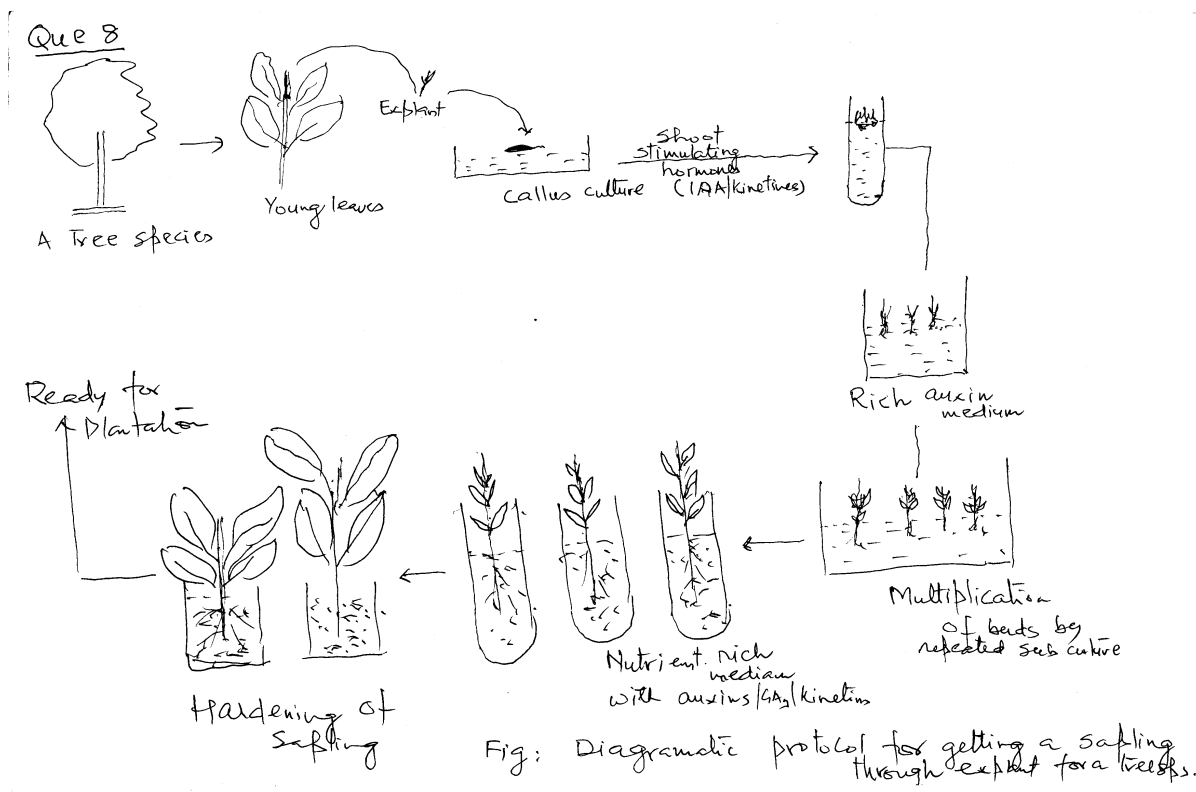 Que 8
A Tree species
Young leaves
Explant
Callus culture
Shoot
stimulating
hormones
(IAA/kinetives)
Rich auxin
medium
Multiplication
of buds by
repeated sub culture
Nutrient rich
medium
with auxins/GA3/kinetins
Hardening of
Sapling
Ready for
Plantation
Fig: Diagramatic protocol for getting a sapling
through explant for a tree sps.